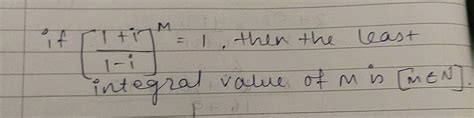 if [1+i/1-i]^M = 1, then the least
integral value of m is [m∈N].